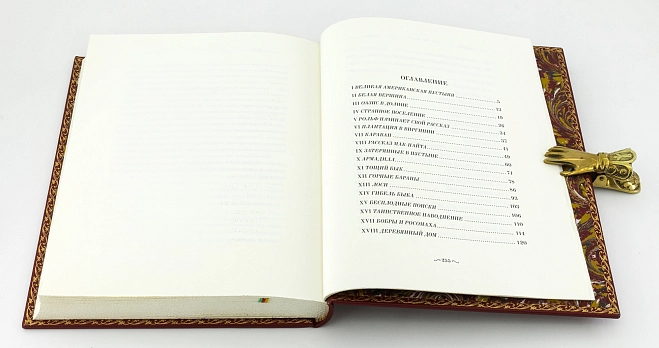 ОГЛАВЛЕНИЕ
I ВЕЛИКАЯ АМЕРИКАНСКАЯ ПУСТЫНЯ 5
II БЕЛАЯ ВЕРШИНА 12
III ОАЗИС В ДОЛИНЕ
IV СТРАННОЕ ПОСЕЛЕНИЕ 19
V РОЛЬФ НАЧИНАЕТ СВОЙ РАССКАЗ 26
VI ПЛАНТАЦИЯ В ВИРГИНИИ 34
VII КАРАВАН 37
VIII РАССКАЗ МАК НАЙТА 41
IX ЗАТЕРЯННЫЕ В ПУСТЫНЕ 49
X АРМАДИЛЛА 60
XI ТОЩИЙ БЫК 71
XII ГОРНЫЕ БАРАНЫ 78
XIII ЛОСИ 86
XIV ГИБЕЛЬ БЫКА 92
XV БЕСПЛОДНЫЕ ПОИСКИ 103
XVI ТАИНСТВЕННОЕ НАВОДНЕНИЕ 106
XVII БОБРЫ И РОСОМАХА 110
XVIII ДЕРЕВЯННЫЙ ДОМ 114
120
255